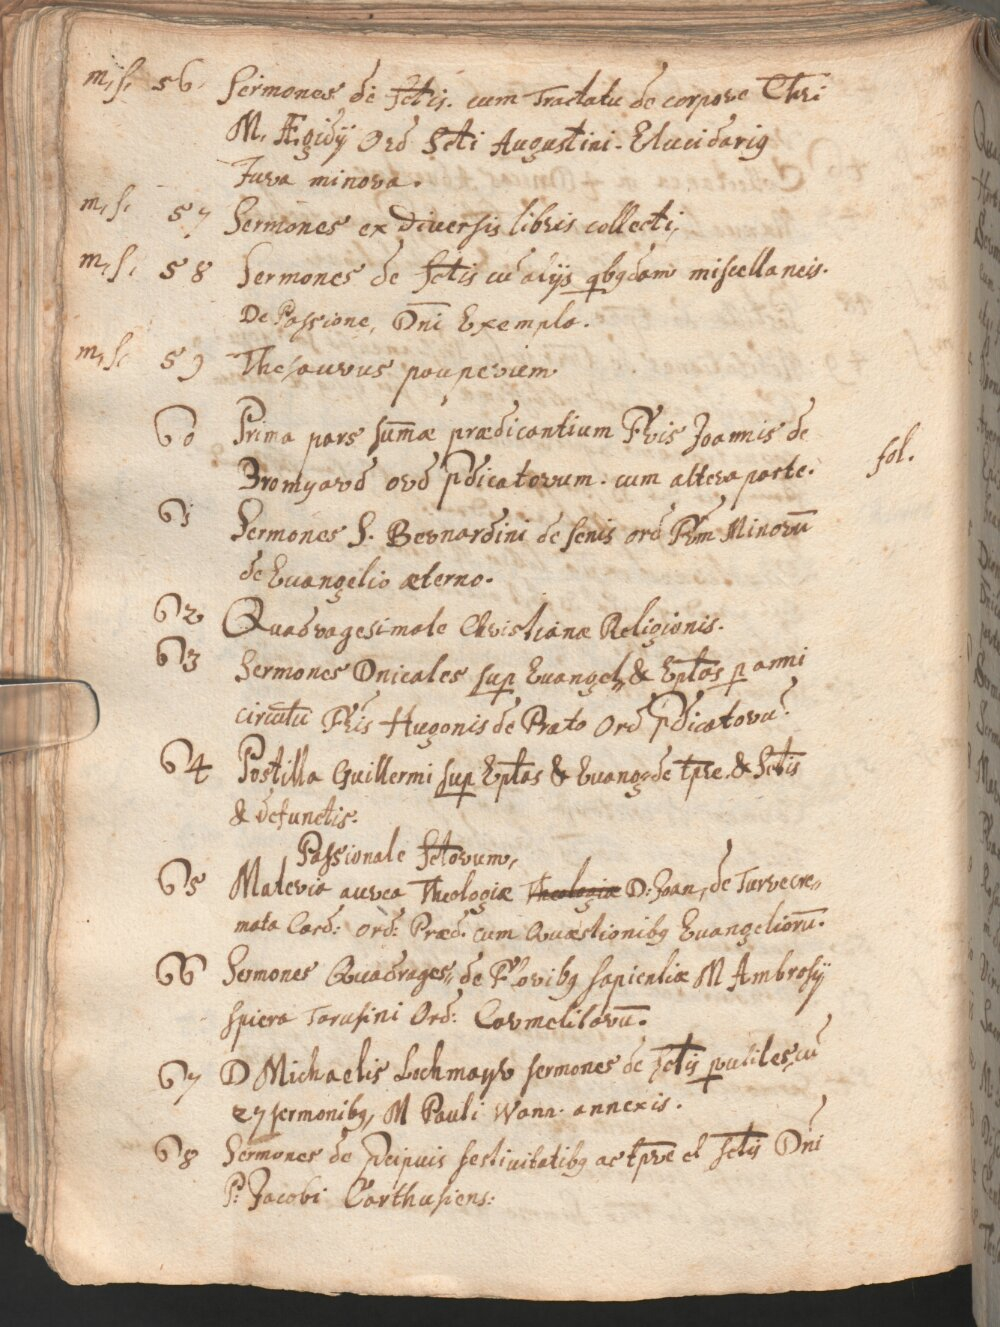 m. s. 56. Sermones de sctis. cum Tractatu de corpore Chri
M. Ægidÿ Ord Scti Augustini. Elucidariq
Jura minora.
m. s. 57 Sermones ex diversis libris collecti,
m. s. 58 Sermones de sctis cu alÿs qbqdam miscellaneis.
De Passione, Dni Exempla.
m. s. 59 Thesaurus pauperum
60 Prima pars sumæ prædicantium Fris Joannis de
Bromyard ord Pdicatorum. cum altera parte. fol.
61 Sermones S. Bernardini de senis ord Frm Minoru
de Euangelio æterno.
62 Quadragesimale Christianæ Religionis.
63 Sermones Dnicales sup Euangel, & Eptas p anni
circutu Fris Hugonis de Prato Ord Pdicatoru.
64 Postilla Guillermi sup Eptas & Euang: de tpre. & Sctis
& defunctis.
Passionale sctorum,
65 Materia aurea Theologiæ Theologiæ D: Joan, de Turrecre,,
mata Card: Ord: Præd: cum Quæstionibq Euangelioru.
66 Sermones Quadrages,, de Floribq sapientiæ M Ambrosÿ
spiera Tarusini Ord: Carmelitaru.
67 D Michaelis Lochmayr sermones de sctis putiles, cu
27 sermonibq, M Pauli Wann. annexis.
68 Sermones de Pcipuis festivitatibq ac tpre et sctis Dni
P: Jacobi Carthusiens: